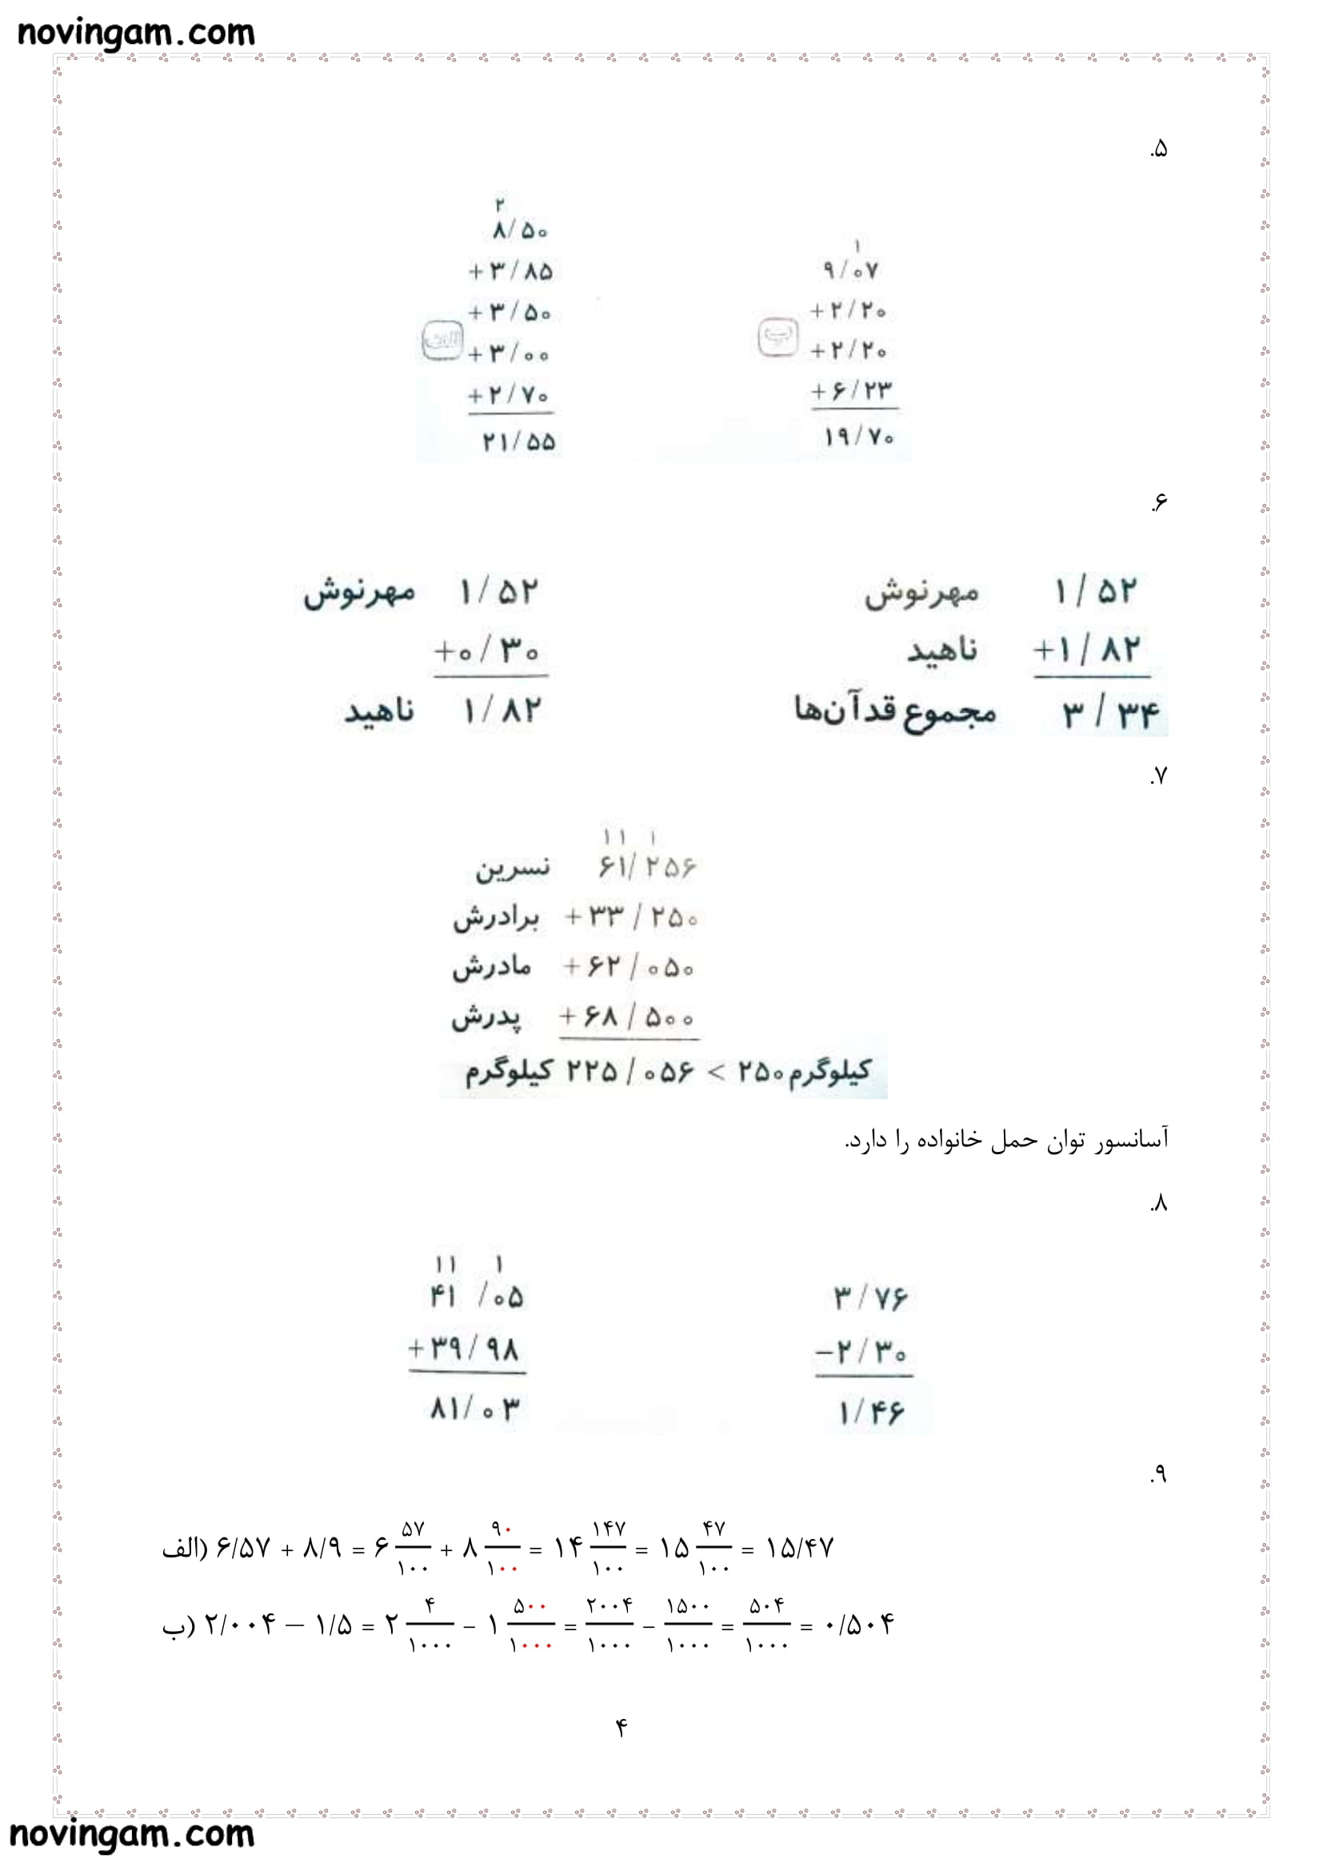 novingam.com
۵.
۲
۸/۵۰
+۳/۸۵
+۳/۵۰
الف
+۳/۰۰
+۲/۷۰
۲۱/۵۵
۱
۹/۰۷
+۲/۲۰
ب
+۲/۲۰
+۶/۲۳
۱۹/۷۰
۶.
مهرنوش ۱/۵۲
+۰/۳۰
ناهید ۱/۸۲
مهرنوش ۱/۵۲
ناهید +۱/۸۲
مجموع قد آن‌ها ۳/۳۴
۷.
۱۱ ۱
نسرین ۶۱/۲۵۶
برادرش +۳۳/۲۵۰
مادرش +۶۲/۰۵۰
پدرش +۶۸/۵۰۰
کیلوگرم ۲۲۵/۰۵۶ < ۲۵۰ کیلوگرم
آسانسور توان حمل خانواده را دارد.
۸.
۱۱ ۱
۴۱/۰۵
+۳۹/۹۸
۸۱/۰۳
۳/۷۶
−۲/۳۰
۱/۴۶
۹.
الف) ۶/۵۷ + ۸/۹ = ۶ ۵۷/۱۰۰ + ۸ ۹۰/۱۰۰ = ۱۴ ۱۴۷/۱۰۰ = ۱۵ ۴۷/۱۰۰ = ۱۵/۴۷
ب) ۲/۰۰۴ − ۱/۵ = ۲ ۴/۱۰۰۰ − ۱ ۵۰۰/۱۰۰۰ = ۲۰۰۴/۱۰۰۰ − ۱۵۰۰/۱۰۰۰ = ۵۰۴/۱۰۰۰ = ۰/۵۰۴
۴
novingam.com